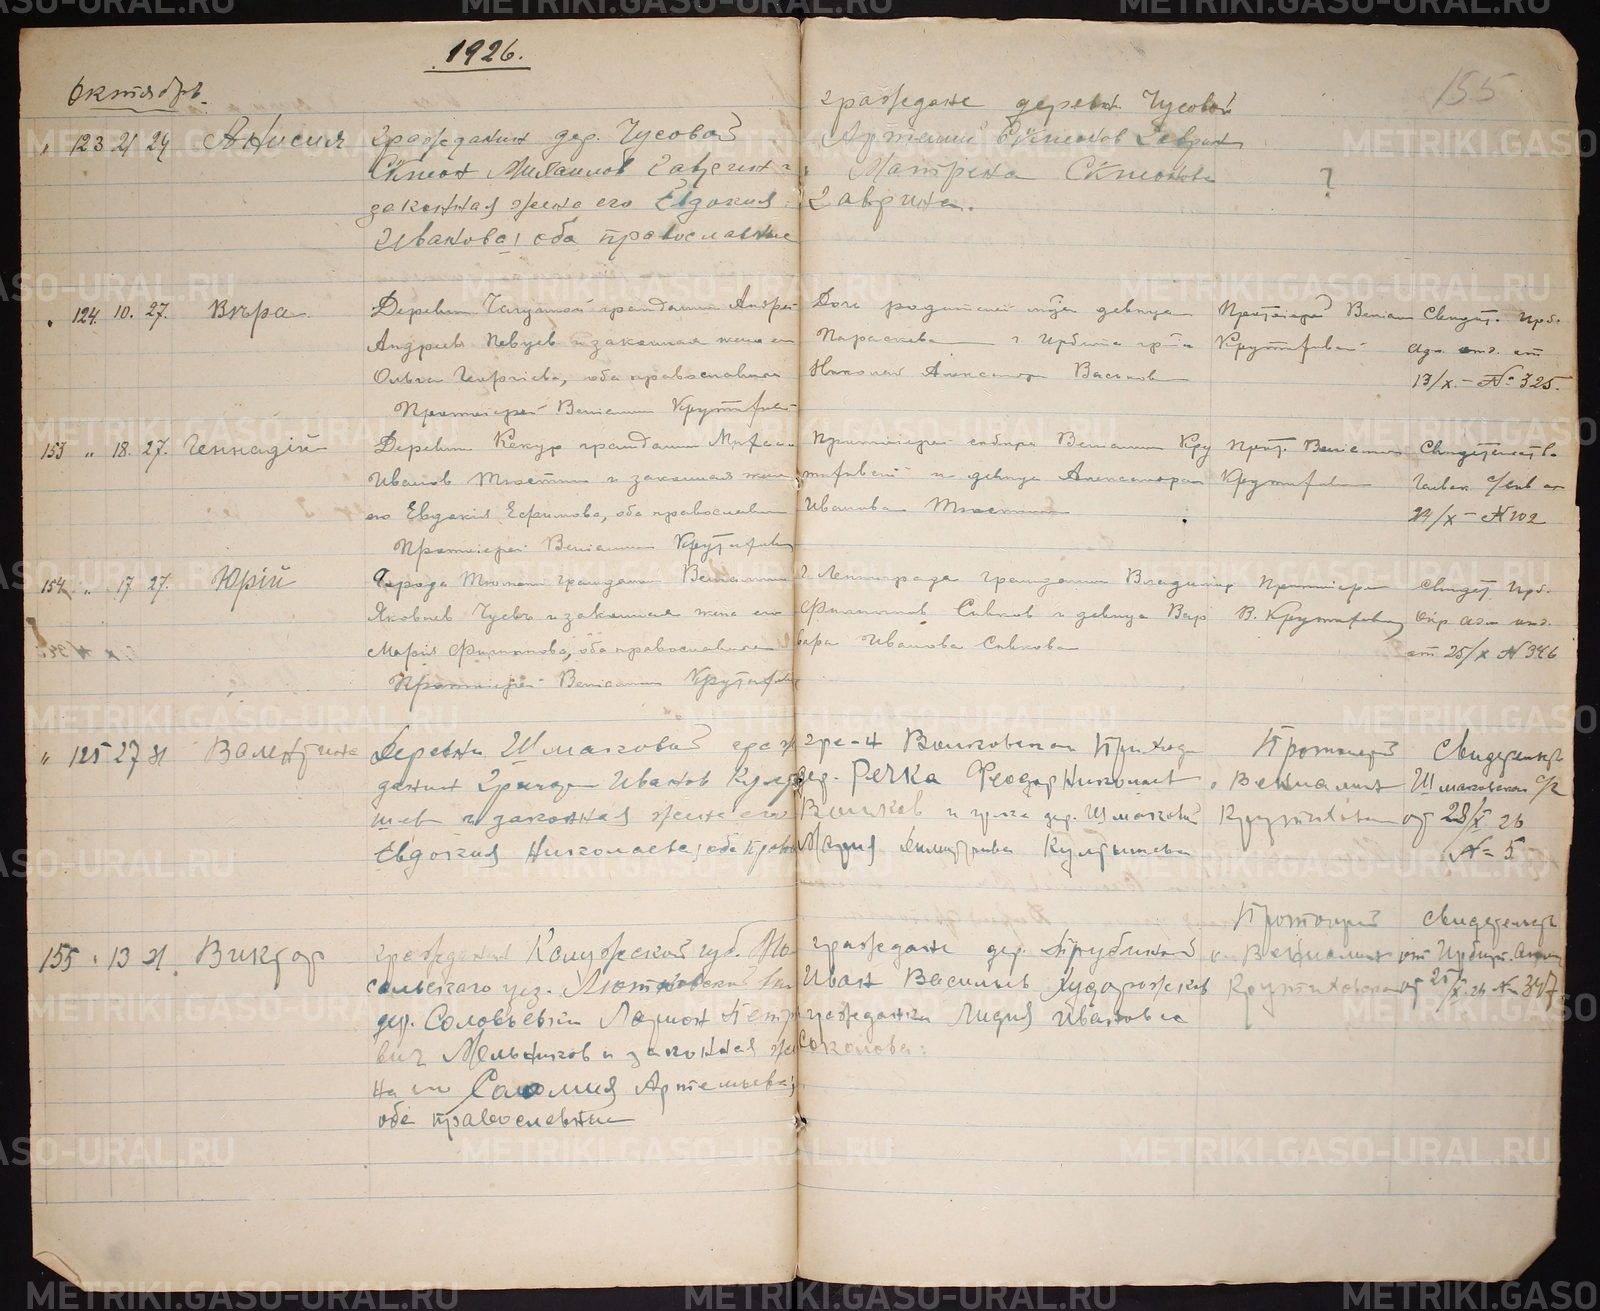 1926.
155
Октябрь.
" 123 21 24 Анисия
гражданин дер. Чусовой
Симеон Михаилов Гаврин и
законная жена его Евдокия
Иванова, оба православные
граждане деревни Чусовой
Артемий Симеонов Гаврин
и Матрена Симеонова
Гаврина.
?
" 124. 10. 27. Вѣра
Деревни гражданин Андрей
Андреев Певцев и законная жена его
Ольга Георгиева, оба православные
Протоиерей Вениамин
Дочь родителей девица
Параскева и г. Ирбита гр-н
Николай Александров Васьков
Протоиерей Вениамин
Свидет. Ирб.
адм. отд. от
13/X. – № 325.
153 " 18. 27. Геннадій
Деревни Кекур гражданин
Иванов и законная жена
его Евдокия Ефимова, оба православные
Протоиерей Вениамин
Протоиерей собора Вениамин Кру
и девица Александра
Иванова
Прот. Вениамин
Свидетельство
24/X – № 102
154 " 17 27. Юрій
Города Тюмени гражданин Вениамин
Яковлев Чусев и законная жена его
Мария Филиппова, оба православные
Протоиерей Вениамин
г. Ленинграда гражданин Владимир
Филиппов Сивков и девица Вар
вара Иванова Сивкова
Протоиерей
В.
Свидет. Ирб.
Окр адм отд.
от 25/X № 346
" 125 27 31 Валентина
Деревни Шмаковой граж
данин Григорий Иванов Култы
шев и законная жена его
Евдокия Николаева, оба право
гр-н Волковской Приход
дер. Речка Феодор Николаев
Волков и гр-ка дер. Шмаковой
Мария Димитриева Култышева
Протоиерей
Вениамин
Свидетельст
Шмаковской с/с
от 28/X 26
№ 5
155 " 13 31. Виктор
гражданин Калужской губ. Мо
сальского уез. Лютковской вол
дер. Соловьевки Ларион Петро
вич Мельников и законная же
на его Саломия Артемьева;
оба православные
граждане дер. Трубиной
Иван Васильев Худорожков
и гражданка Лидия Ивановна
Соколова:
Протоиерей
Вениамин
Свидетельст
от Ирбит.
от 25/X. 26 № 347
METRIKI.GASO-URAL.RU